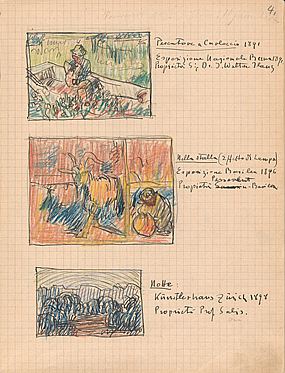 4.
Pescatore a Carloccio 1891
Esposizione Nazionale Berna 189
Proprietà S: Dr. J. Walter Haug
Nella stalla (Effetto di Lampa)
Esposizione Basilea 1896
Proprietà Basilea
Notte
Künstlerhaus Zürich 1898
Proprietà Prof Salis.